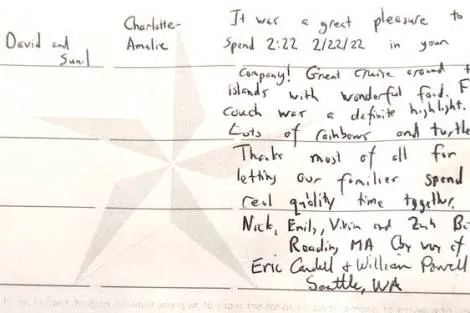 David and
Sunil
Charlotte-
Amalie
It was a great pleasure to
Spend 2:22 2/22/22 in your
company! Great cruise around
islands with wonderful food. F
couch was a definite highlight.
Lots of rainbows and turtle
Thanks most of all for
letting our familier spend
real quality time together,
Nick, Emily, and Zach
Reading, MA
Eric & William Powell
Seattle, WA